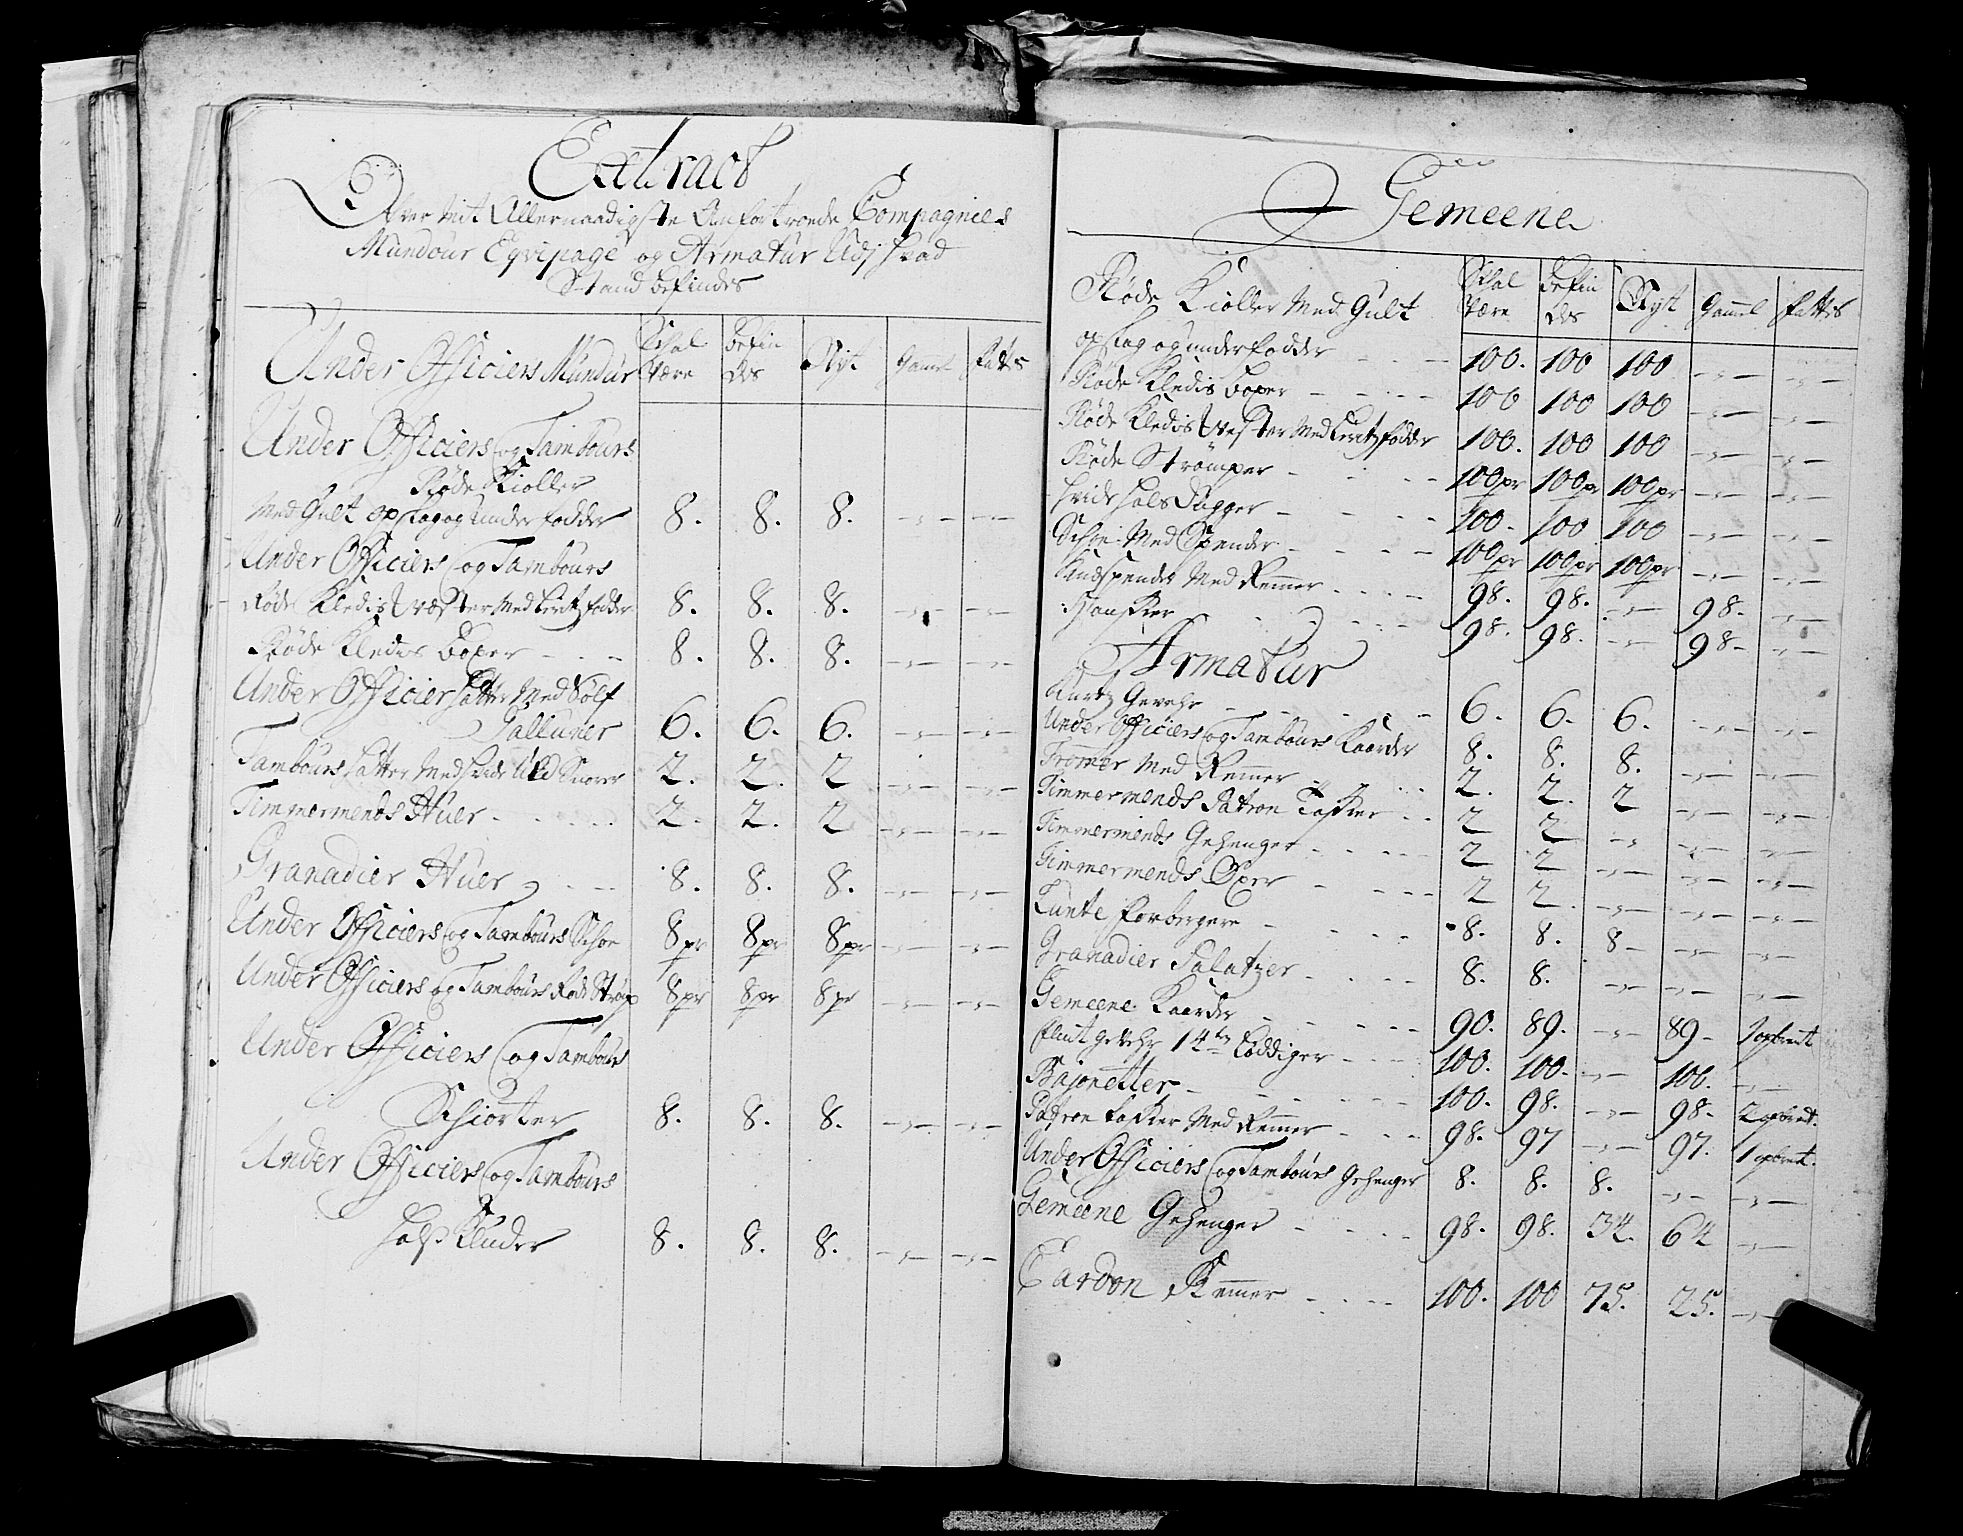 Extract
Over mit Allernaadigste Anfortroede Compagnies
Mundour Eqvipage og Armatur Udj hvad
Stand befindes
Under Officiers Mundur | Schal være | Befindes | Nyt | Gamel | Fattes
Under Officiers og Tambours
Røde Kioller
Med Gult opslag og underfodder | 8. | 8. | 8. | - | -
Under Officiers og Tambours
Røde Kledis Wæster Med Lerritz fodder | 8. | 8. | 8. | - | -
Røde Kledis Boxer | 8. | 8. | 8. | - | -
Under Officier Hatter Med Sølf
Galluner | 6. | 6. | 6. | - | -
Tambours Hatter Med hvide Uld Snorer | 2. | 2. | 2 | - | -
Timmermends Huer | 2. | 2. | 2 | - | -
Granadier Huer | 8. | 8. | 8. | - | -
Under Officiers og Tambours Schoe | 8pr | 8pr | 8pr | - | -
Under Officiers og Tambours Røde Strømp | 8pr | 8pr | 8pr | - | -
Under Officiers og Tambours
Schiorter | 8. | 8. | 8. | - | -
Under Officiers og Tambours
Hals Kluder | 8. | 8. | 8. | - | -
Gemeene
Røde Kioller Med Gult | Schal være | Befindes | Nyt | Gammel | Fattes
opslag og underfodder | 100. | 100 | 100 | - | -
Røde Kledis Boxer | 100 | 100 | 100 | - | -
Røde Kledis Wester Med Lerritz fodder | 100. | 100 | 100 | - | -
Røde Strømper | 100pr | 100pr | 100pr | - | -
Hvide Hals Dugger | 100. | 100 | 100 | - | -
Schoe Med Spender | 100pr | 100pr | 100pr | - | -
Knæspender Med Remmer | 98. | 98. | - | 98. | -
Hansker | 98. | 98. | - | 98- | -
Armatur
Kortz Gevehr | 6. | 6. | 6. | - | -
Under Officiers og Tambours Kaarder | 8. | 8. | 8. | - | -
Trommer Med Remmer | 2. | 2. | 2 | - | -
Timmermends Patron Tasker | 2 | 2 | - | - | -
Timmermends Gehenger | 2 | 2 | - | - | -
Timmermends Øxer | 2 | 2. | - | - | -
Lunte Forbergere | 8. | 8. | 8- | - | -
Granadier Palatzer | 8. | 8. | - | - | -
Gemeene Kaarder | 90. | 89. | - | 89- | 1
Flint gevehr 14 Løddiger | 100. | 100. | - | 100. | -
Bajonetter | 100. | 98. | - | 98. | 2
Patron Tasker Med Remmer | 98. | 97 | - | 97. | 1
Under Officiers og Tambours Gehenger | 8. | 8. | 8. | - | -
Gemeene Gehenger | 98. | 98. | 34. | 64 | -
Cardon Remmer | 100. | 100 | 75. | 25. | -